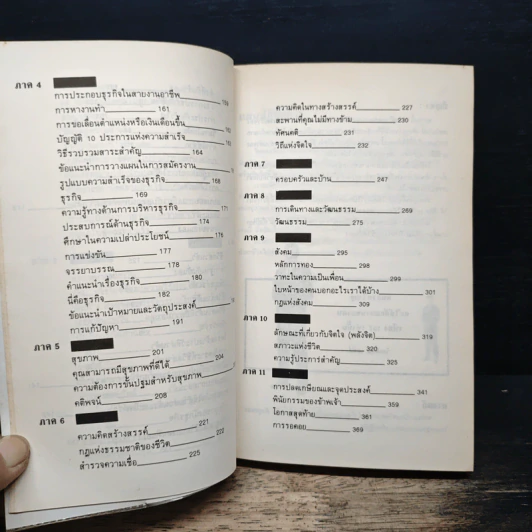 ภาค 4
การประกอบธุรกิจในสายงานอาชีพ
การหางานทำ 161
การขอเลื่อนตำแหน่งหรือเงินเดือนขึ้น
บัญญัติ 10 ประการแห่งความสำเร็จ
วิธีรวบรวมสาระสำคัญ 164
ข้อแนะนำการวางแผนในการสมัครงาน
รูปแบบความสำเร็จของธุรกิจ 168
ธุรกิจ 169
ความรู้ทางด้านการบริหารธุรกิจ
ประสบการณ์ด้านธุรกิจ 174
ศึกษาในความเปล่าประโยชน์ 176
การแข่งขัน 177
จรรยาบรรณ 178
คำแนะนำเรื่องธุรกิจ 180
นี่คือธุรกิจ 182
ข้อแนะนำเป้าหมายและวัตถุประสงค์
การแก้ปัญหา 191
ภาค 5
สุขภาพ 201
คุณสามารถมีสุขภาพที่ดีได้ 204
ความต้องการขั้นปฐมสำหรับสุขภาพ
คติพจน์ 208
ภาค 6
ความคิดสร้างสรรค์ 221
กฎแห่งธรรมชาติของชีวิต 222
สำรวจความเชื่อ 225
ความคิดในทางสร้างสรรค์ 227
สะพานที่คุณไม่มีทางข้าม 230
ทัศนคติ 231
วิถีแห่งจิตใจ 232
ภาค 7
ครอบครัวและบ้าน 247
ภาค 8
การเดินทางและวัฒนธรรม 269
วัฒนธรรม 275
ภาค 9
สังคม 295
หลักการทอง 298
วาทะในความเป็นเพื่อน 299
ใบหน้าของคนบอกอะไรเราได้บ้าง 301
กฎแห่งสังคม 309
ภาค 10
ลักษณะที่เกี่ยวกับจิตใจ (พลังจิต) 319
สภาวะแห่งชีวิต 320
ความรู้ประการสำคัญ 325
ภาค 11
การปลดเกษียณและจุดประสงค์ 341
พินัยกรรมของข้าพเจ้า 359
โอกาสสุดท้าย 361
การรอคอย 369